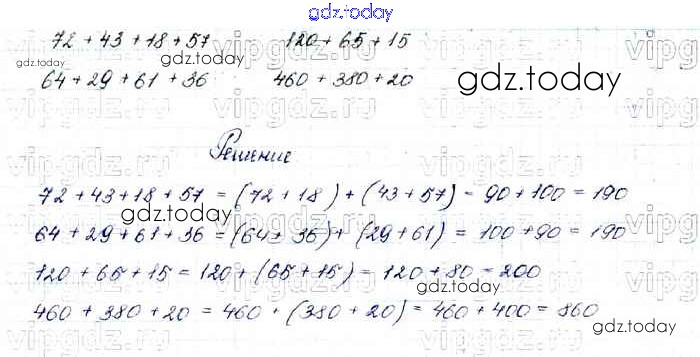 gdz.today
72 + 43 + 18 + 57 120 + 65 + 15
gdz.today
64 + 29 + 61 + 36 460 + 380 + 20
gdz.today
gdz.today
vipgdz.ru
Решение
72 + 43 + 18 + 57 = (72 + 18) + (43 + 57) = 90 + 100 = 190
gdz.today
64 + 29 + 61 + 36 = (64 + 36) + (29 + 61) = 100 + 90 = 190
120 + 65 + 15 = 120 + (65 + 15) = 120 + 80 = 200
460 + 380 + 20 = 460 + (380 + 20) = 460 + 400 = 860
gdz.today
gdz.today